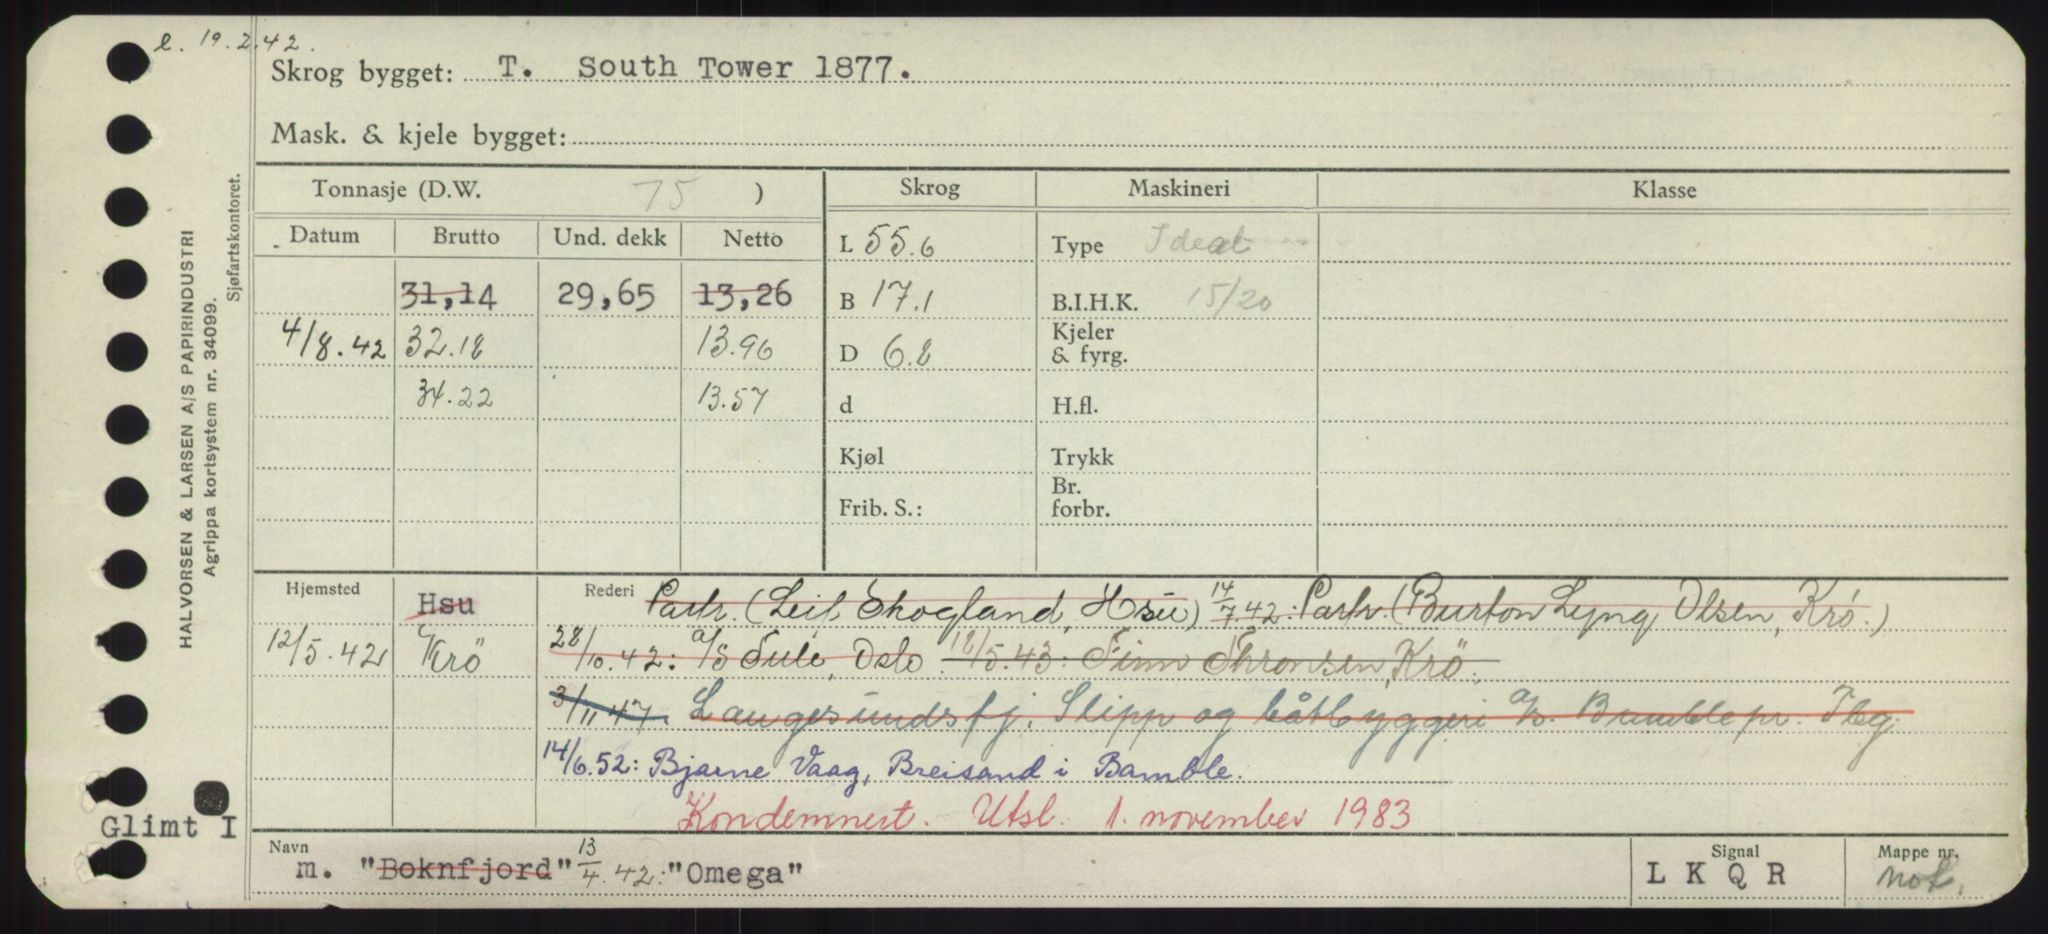 e. 19.2.42.
Skrog bygget: T. South Tower 1877.
Mask. & kjele bygget:
HALVORSEN & LARSEN A/S PAPIRINDUSTRI
Agrippa kortsystem nr. 34099.
Sjøfartskontoret.
Tonnasje (D.W. 75 )
Skrog
Maskineri
Klasse
Datum Brutto Und. dekk Netto
L 55.6
Type Ideal
31,14 29,65 13,26
B 17.1
B.I.H.K. 15/20
4/8.42 32.18 13.96
D 6.8
Kjeler
& fyrg.
34.22 13.57
d
H.fl.
Kjøl
Trykk
Frib. S.:
Br.
forbr.
Hjemsted Hsu
Rederi Partr. (Leif Skogland, Hsu) 14/7.42: Partr. (Burton Lyng Olsen, Krö.)
12/5.42 Krö
28/10.42: A/S Sule, Oslo. 18/5.43: Finn Thronsen, Krö.
3/11 47. Langesundsfj. Slipp og båtbyggeri A/S. Bumble pr.
14/6.52: Bjarne Vaag, Breisand i Bamble.
Kondemnert. Utsl. 1. november 1983
Glimt I
Navn
m. "Boknfjord" 13/4.42: "Omega"
Signal
L K Q R
Mappe nr.
not.